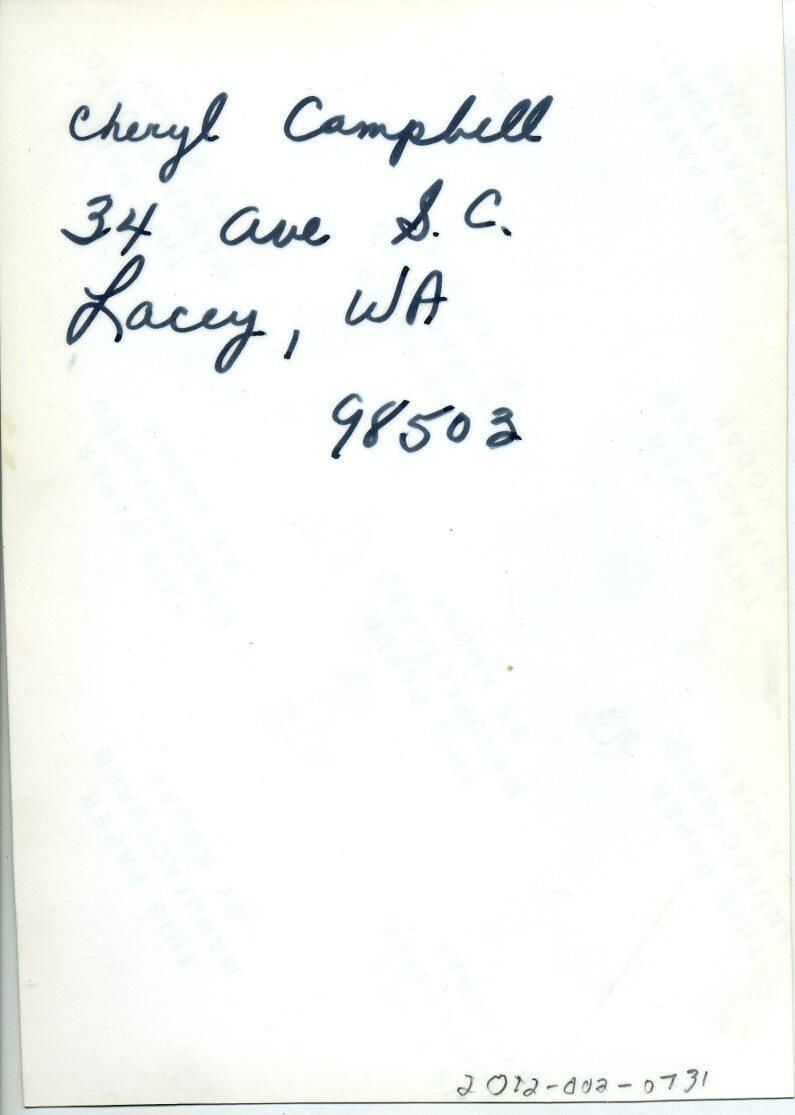 Cheryl Campbell
34 Ave S.C.
Lacey, WA
98503
THIS PAPER
MANUFACTURED
BY KODAK
2012-002-0731